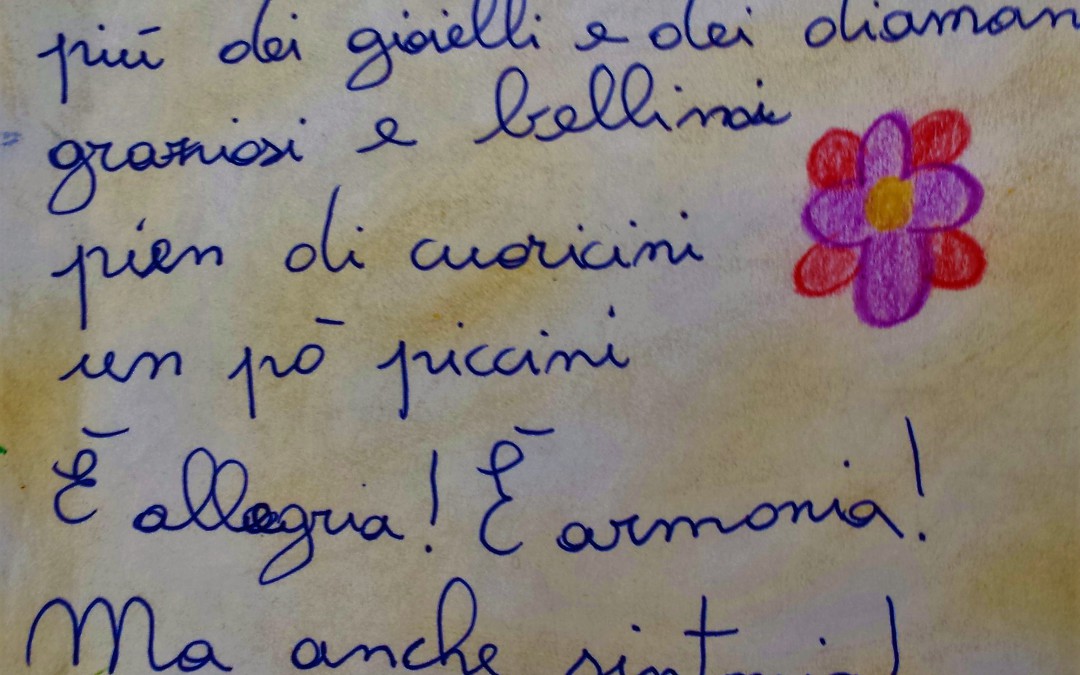 più dei gioielli e dei diaman
graziosi e bellini
pien di cuoricini
un pò piccini
È allegria! È armonia!
Ma anche sintonia!